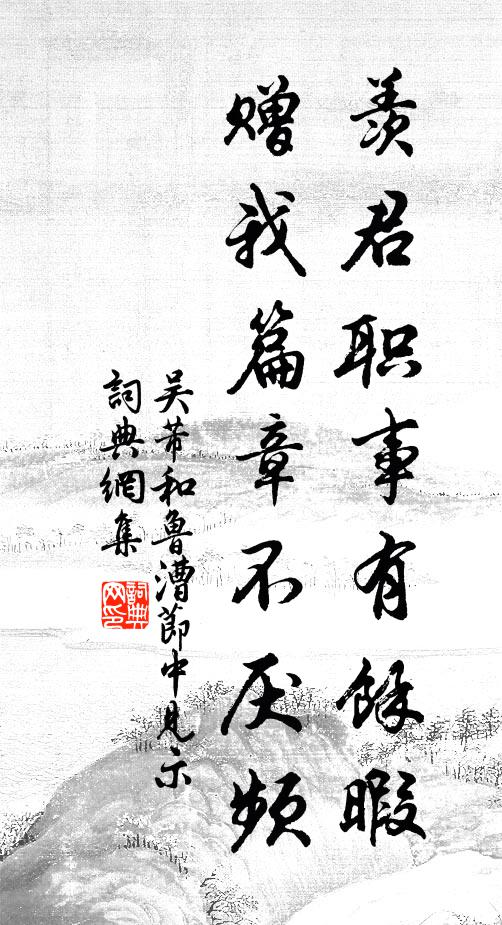 羡君职事有馀暇
赠我篇章不厌频
吴芾和鲁漕节中见示
詞典網集
詞典网印